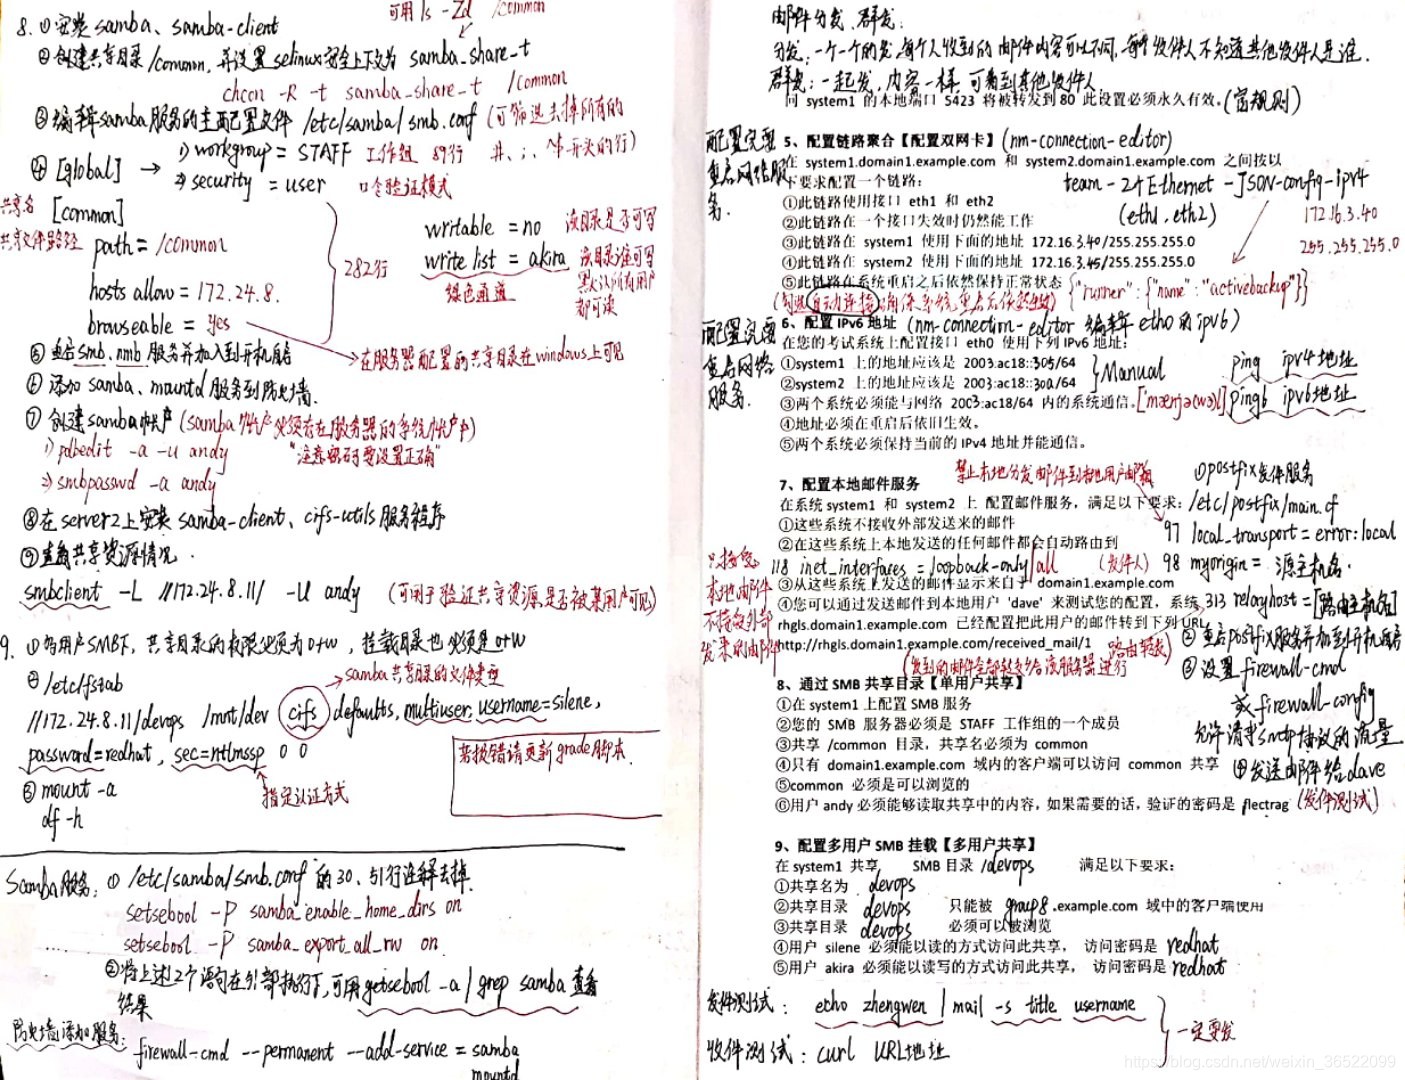 可用 ls -Zd /common
8. ①安装 samba、samba-client
②创建共享目录 /common, 并设置 selinux安全上下文为 samba_share_t
chcon -R -t samba_share_t /common
③编辑samba服务的主配置文件 /etc/samba/smb.conf (可筛选去掉所有的
#、;、个开头的行)
④ [global] → 1) workgroup = STAFF 工作组 89行
2) security = user 口令验证模式
共享名 [common]
共享文件路径 path = /common
hosts allow = 172.24.8.
browseable = yes
282行
writable = no 该目录是否可写
write list = akira 该目录谁可写
绿色通道 默认所有用户
都可读
→在服务器配置的共享目录在windows上可见
⑤ 重启smb、nmb 服务并加入到开机启
⑥ 添加 samba、mountd 服务到防火墙.
⑦ 创建samba帐户 (samba帐户必须存在服务器的系统帐户中)
1) pdbedit -a -u andy "注意密码要设置正确"
2) smbpasswd -a andy
⑧在server2上安装 samba-client、cifs-utils服务程序
⑨查看共享资源情况.
smbclient -L //172.24.8.11/ -U andy (可用于验证共享资源是否被某用户可见)
9. ①多用户SMB下, 共享目录的权限必须为o+w, 挂载目录也必须是o+w
② /etc/fstab → samba共享目录的文件类型
//172.24.8.11/devops /mnt/dev cifs defaults, multiuser, username=silene,
password=redhat, sec=ntlmssp 0 0
指定认证方式
若报错请更新grade脚本.
③ mount -a
df -h
Samba服务: ① /etc/samba/smb.conf 的30、31行注释去掉.
setsebool -P samba_enable_home_dirs on
setsebool -P samba_export_all_rw on
②将上述2个语句在外部执行, 可用getsebool -a | grep samba 查看
结果
防火墙添加服务: firewall-cmd --permanent --add-service = samba
mountd
邮件分发、群发:
分发: 一个一个的发, 每个人收到的邮件内容可以不同, 每个收件人不知道其他收件人是谁.
群发: 一起发, 内容一样, 可看到其他收件人
向 system1 的本地端口 5423 将被转发到 80 此设置必须永久有效。(富规则)
配置完要
重启网络服
务.
5、配置链路聚合【配置双网卡】(nm-connection-editor)
在 system1.domain1.example.com 和 system2.domain1.example.com 之间按以
下要求配置一个链路:
team - 2个Ethernet - JSON-config-ipv4
(eth1, eth2)
172.16.3.40
255.255.255.0
①此链路使用接口 eth1 和 eth2
②此链路在一个接口失效时仍然能工作
③此链路在 system1 使用下面的地址 172.16.3.40/255.255.255.0
④此链路在 system2 使用下面的地址 172.16.3.45/255.255.255.0
⑤此链路在系统重启之后依然保持正常状态
自动连接
{"runner": {"name": "activebackup"}}
配置完要
重启网络
服务.
6、配置 IPv6 地址 (nm-connection-editor 编辑 eth0 的ipv6)
在您的考试系统上配置接口 eth0 使用下列 IPv6 地址:
①system1 上的地址应该是 2003:ac18::305/64
②system2 上的地址应该是 2003:ac18::30a/64
Manual
ping ipv4地址
ping6 ipv6地址
③两个系统必须能与网络 2003:ac18/64 内的系统通信。
④地址必须在重启后依旧生效。
⑤两个系统必须保持当前的 IPv4 地址并能通信。
禁止本地分发邮件到本地用户邮箱
7、配置本地邮件服务
①postfix发件服务
在系统 system1 和 system2 上 配置邮件服务, 满足以下要求:
/etc/postfix/main.cf
①这些系统不接收外部发送来的邮件
97 local_transport = error:local
②在这些系统上本地发送的任何邮件都会自动路由到
118 inet_interfaces = loopback-only/all
(发件人) 98 myorigin = 源主机名.
只接收
本地邮件
不接收外部
发来的邮件
③从这些系统上发送的邮件显示来自于 domain1.example.com
④您可以通过发送邮件到本地用户 'dave' 来测试您的配置, 系统
313 relayhost = [路由主机名]
rhgls.domain1.example.com 已经配置把此用户的邮件转到下列 URL
http://rhgls.domain1.example.com/received_mail/1
②重启postfix服务并加到开机启
③设置 firewall-cmd
或 firewall-config
允许请求smtp协议的流量
④发送邮件给dave
(发件测试)
8、通过 SMB 共享目录【单用户共享】
①在 system1 上配置 SMB 服务
②您的 SMB 服务器必须是 STAFF 工作组的一个成员
③共享 /common 目录, 共享名必须为 common
④只有 domain1.example.com 域内的客户端可以访问 common 共享
⑤common 必须是可以浏览的
⑥用户 andy 必须能够读取共享中的内容, 如果需要的话, 验证的密码是 flectrag
9、配置多用户 SMB 挂载【多用户共享】
在 system1 共享 SMB 目录 /devops 满足以下要求:
①共享名为 devops
②共享目录 devops 只能被 group8.example.com 域中的客户端使用
③共享目录 devops 必须可以被浏览
④用户 silene 必须能以读的方式访问此共享, 访问密码是 redhat
⑤用户 akira 必须能以读写的方式访问此共享, 访问密码是 redhat
发件测试: echo zhengwen | mail -s title username
收件测试: curl URL地址
一定要发
https://blog.csdn.net/weixin_36522099